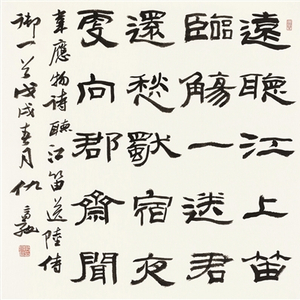 遠聽江上笛
臨觴一送君
還愁獨宿夜
更向郡齋聞
韋應物诗聽江笛送陸侍
御一首戊戌春月仇高馳